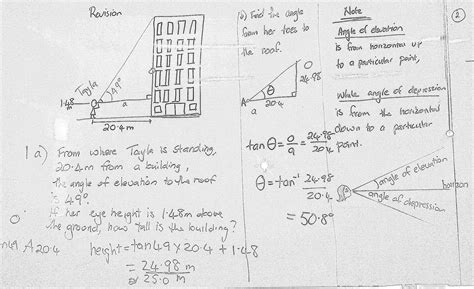 Revision
Tayla
49°
1.48m
a
20.4m
1 a) From where Tayla is standing,
20.4m from a building,
the angle of elevation to the roof
is 49°.
If her eye height is 1.48m above
the ground, how tall is the building?
O
A 20.4
height = tan49 × 20.4 + 1.48
= 24.98 m
≈ 25.0 m
(b) Find the angle
from her toes to
the roof.
O
24.98
θ
A
a
20.4
tan θ = O/a = 24.98/20.4
θ = tan⁻¹ 24.98/20.4
= 50.8°
Note
2
Angle of elevation
is from horizontal up
to a particular point,
While angle of depression
is from the horizontal
down to a particular
point.
angle of elevation
horizon
angle of depression